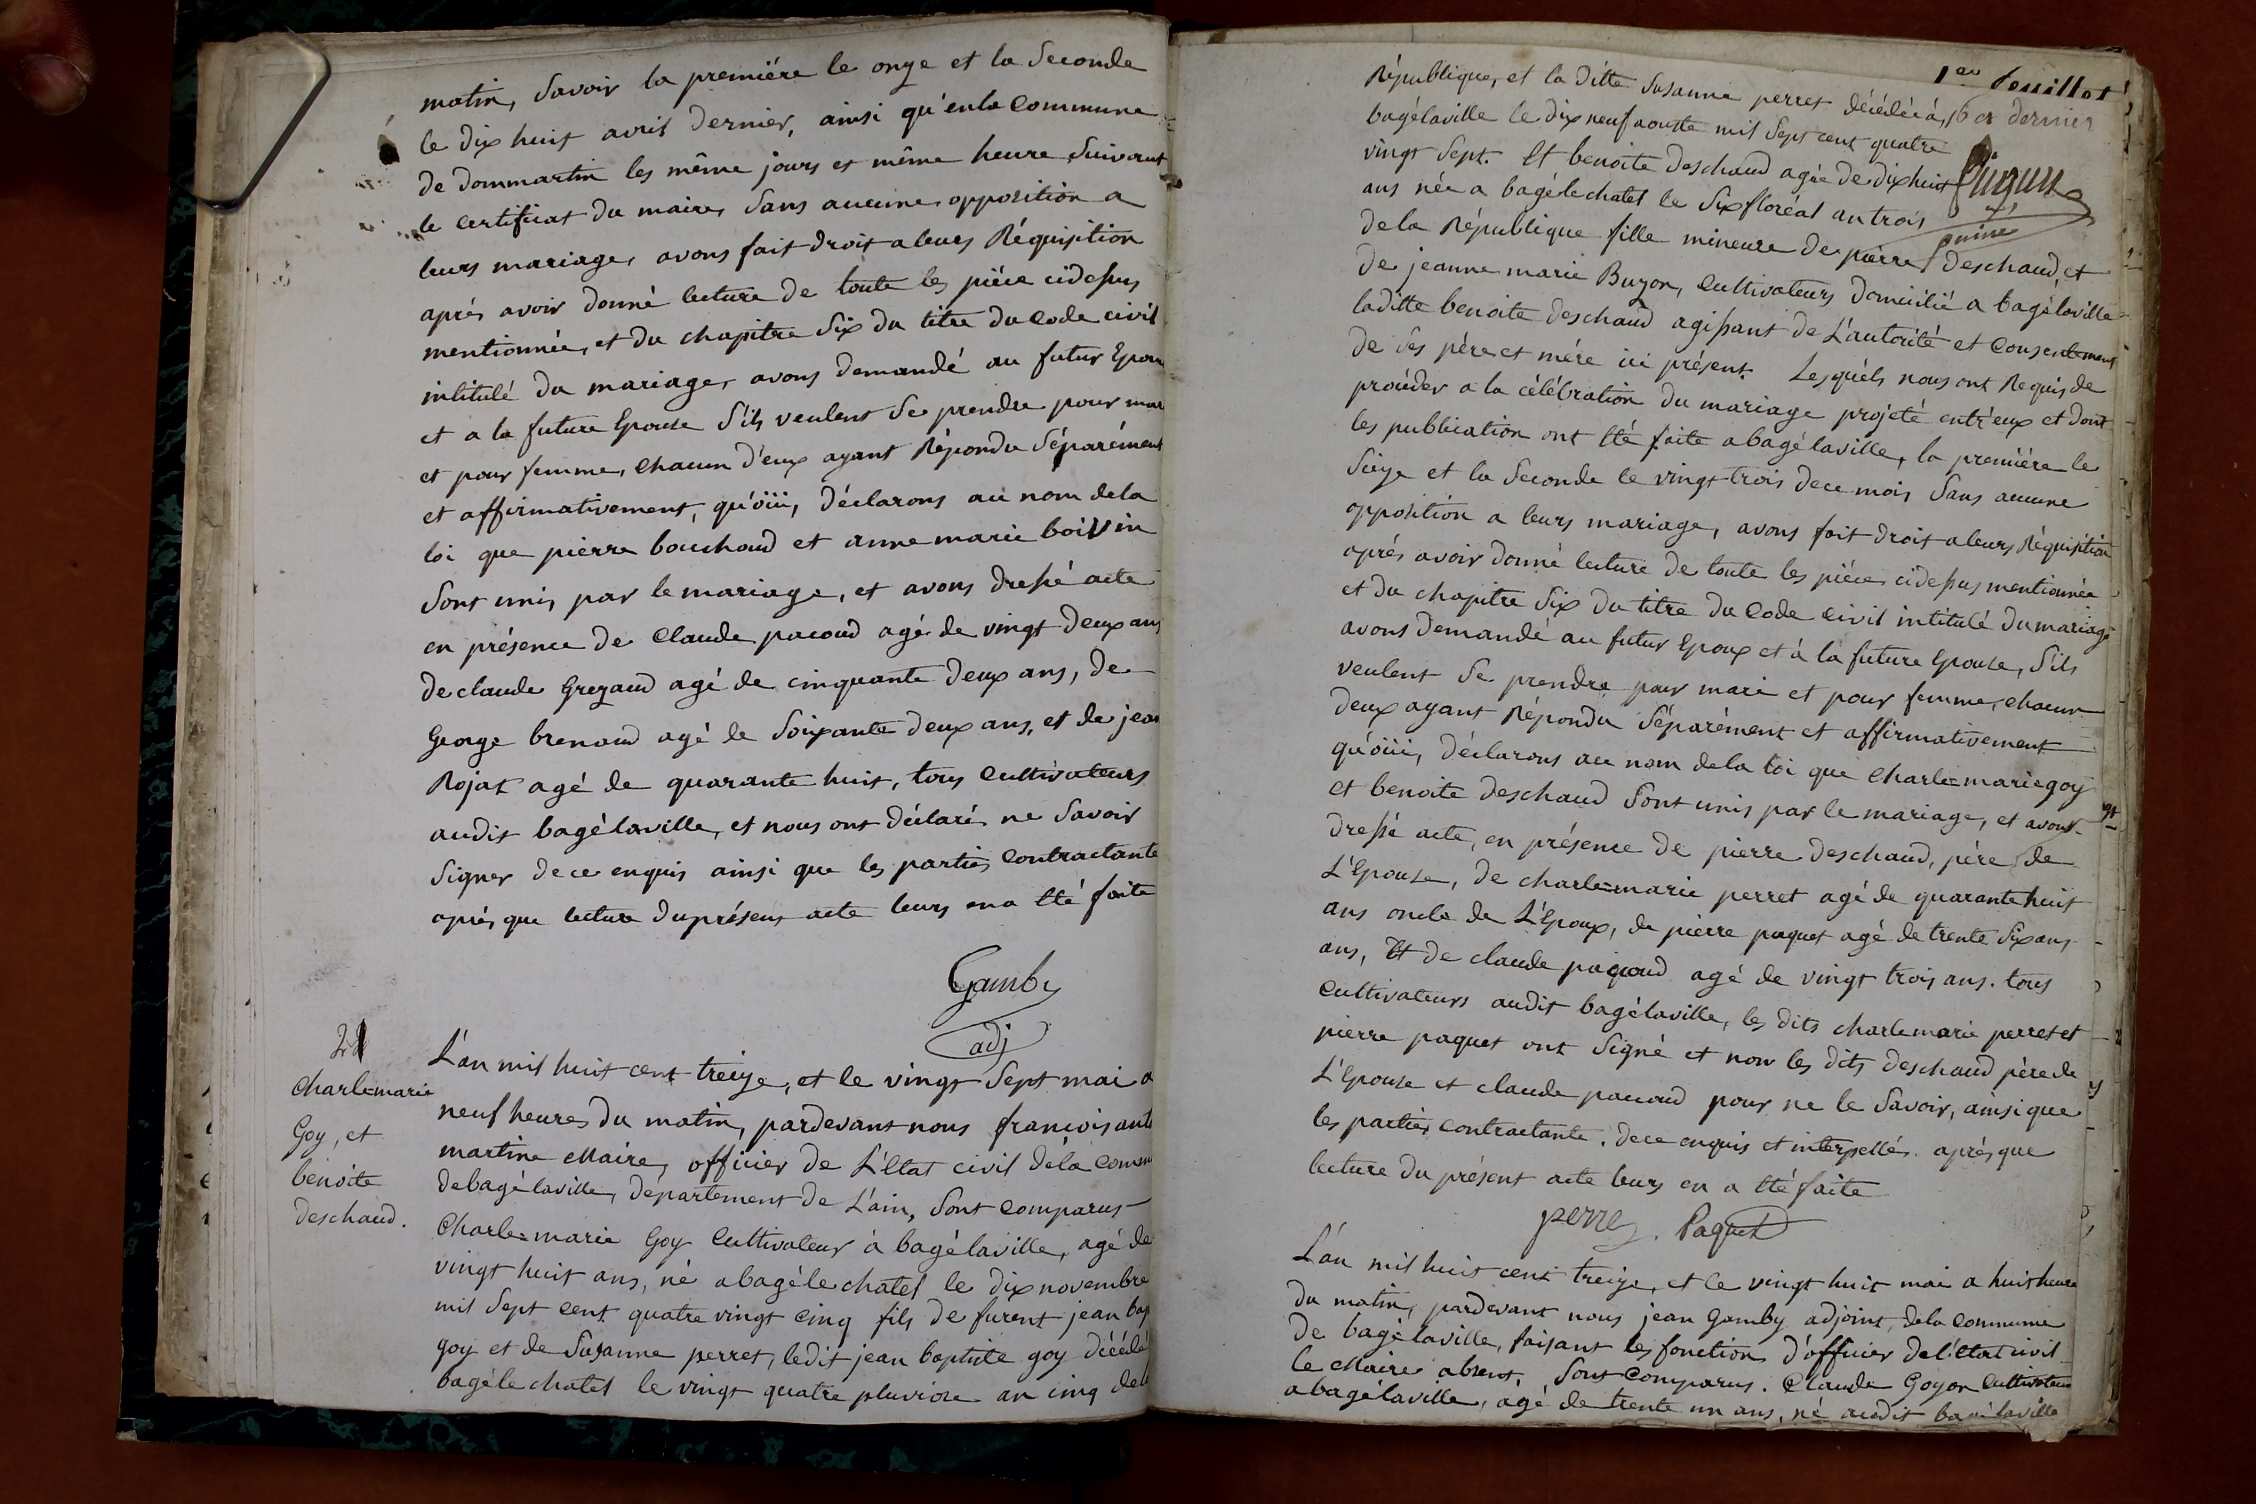 matin, Savoir la premiére le onze et la Seconde
le dix huit avril dernier, ainsi qu'en la Commune
de dommartin les même jours et même heure Suivant
le Certificat du maire, Sans aucune opposition a
leurs mariage, avons fait droit a leurs Réquisition
aprés avoir donné lecture de toute les piéce cidessus
mentionnée, et du chapitre Six du titre du Code civil
intitulé du mariage, avons demandé au futur Epoux
et a la future Epouse S'ils veulent Se prendre pour mari
et pour femme, Chacun d'eux ayant Répondu Séparément
et affirmativement, qu'oüi, déclarons au nom de la
loi que pierre bouchoud et anne marie boivin
Sont unis par le mariage, et avons dressé acte
en présence de Claude pacoud agé de vingt deux ans
de claude Grezaud agé de cinquante deux ans, de
George brenaud agé de Soixante deux ans, et de jean
Rojat agé de quarante huit, tous Cultivateurs
audit bagélaville, et nous ont déclaré ne Savoir
Signer de ce enquis ainsi que les parties Contractante
aprés que lecture du présent acte leurs en a été faite
Gamby
adj
Charle marie
Goy, et
benoite
deschaud.
L'an mil huit cent treize, et le vingt Sept mai a
neuf heures du matin, pardevant nous francois
martine Maire, officier de L'Etat civil de la
de bagélaville, département de L'ain, Sont comparus
Charle=marie Goy Cultivateur à bagélaville, agé de
vingt huit ans, né a bagé le chatel le dix novembre
mil Sept cent quatre vingt cinq fils de furent jean
goy et de Susanne perret, ledit jean baptiste goy décédé
bagé le chatel le vingt quatre pluviose an cinq
1er feuillet
République, et la ditte Susanne perret décédée à
dernier
bagélaville le dix neuf aouste mil Sept cent quatre
vingt Sept. Et benoite deschaud agée de dix huit
ans née a bagé le chatel le Six floréal an trois
de la République fille mineure de pierre deschaud, et
de jeanne marie Buzon, Cultivateurs domicilié a bagélaville
laditte benoite deschaud agissant de L'autorité et Consentement
de Ses pére et mére ici présent. Lesquéls nous ont Requis de
procéder a la célébration du mariage projeté entr'eux et dont
les publication ont été faite a bagélaville, la premiére le
Seize et la Seconde le vingt-trois de ce mois, Sans aucune
opposition a leurs mariage, avons fait droit a leurs Réquisition
aprés avoir donné lecture de toute les piéce cidessus mentionnée
et du chapitre Six du titre du Code civil intitulé du mariage
avons demandé au futur Epoux et à la future Epouse, S'ils
veulent Se prendre pour mari et pour femme, chacun
deux ayant Répondu Séparément et affirmativement
qu'oüi, déclarons au nom de la loi que Charle=marie goy
et benoite deschaud Sont unis par le mariage, et avons
dressé acte, en présence de pierre deschaud, pére de
L'Epouse, de charle=marie perret agé de quarante huit
ans oncle de L'Epoux, de pierre paquet agé de trente Six ans
ans, Et de claude pacoud agé de vingt trois ans. tous
Cultivateurs audit bagélaville, les dits charle marie perret et
pierre paquet ont Signé et non les dits deschaud pére de
L'Epouse et claude pacoud pour ne le Savoir, ainsi que
les parties contractante. de ce enquis et interpellés. aprés que
lecture du présent acte leurs en a été faite
perret. Paquet
L'an mil huit cent treize, et le vingt huit mai a huit heure
du matin, pardevant nous jean Gamby adjoint, de la Commune
de bagélaville, faisant les fonction d'officier de l'état civil
le Maire absent. Sont Comparus. Claude Goyon Cultivateur
a bagélaville, agé de trente un ans, né audit bagélaville